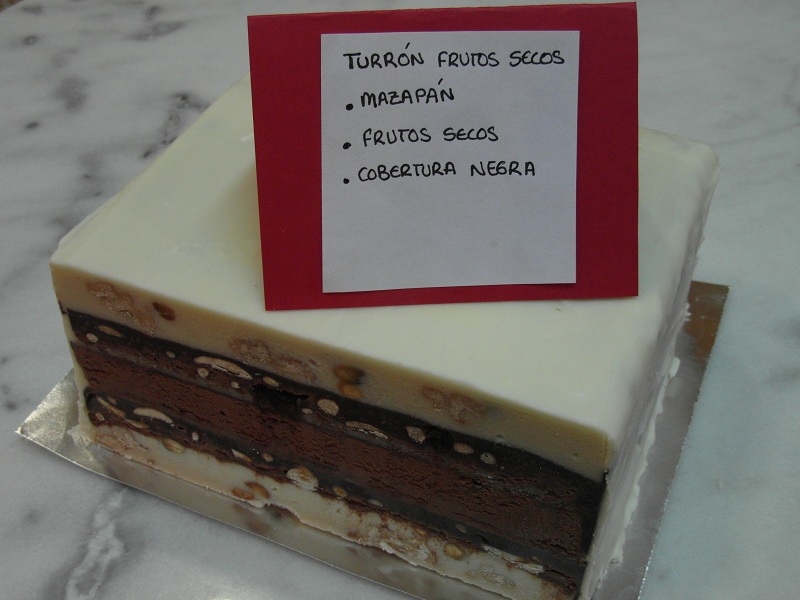 TURRÓN FRUTOS SECOS
• MAZAPÁN
• FRUTOS SECOS
• COBERTURA NEGRA